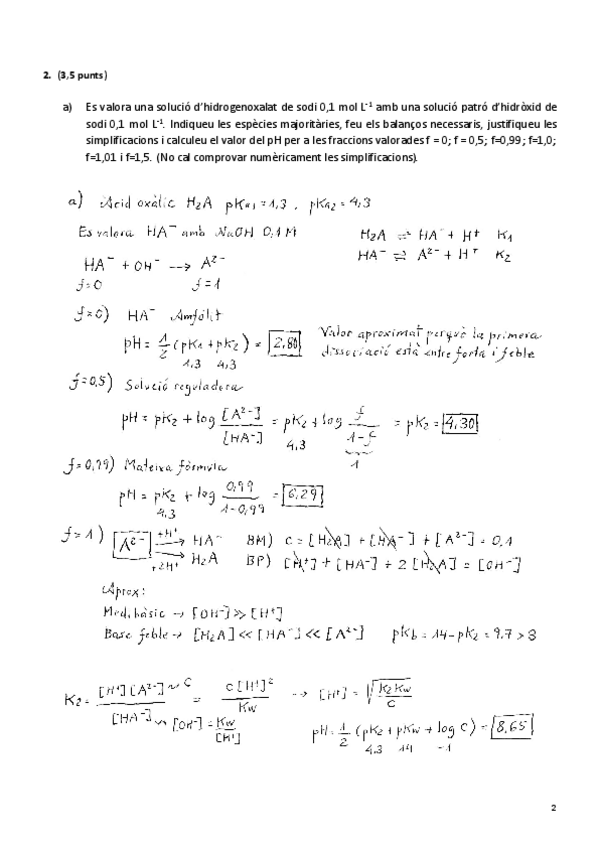 2. (3,5 punts)
a) Es valora una solució d'hidrogenoxalat de sodi 0,1 mol L⁻¹ amb una solució patró d'hidròxid de
sodi 0,1 mol L⁻¹. Indiqueu les espècies majoritàries, feu els balanços necessaris, justifiqueu les
simplificacions i calculeu el valor del pH per a les fraccions valorades f = 0; f = 0,5; f=0,99; f=1,0;
f=1,01 i f=1,5. (No cal comprovar numèricament les simplificacions).
a) Àcid oxàlic H₂A pKa1 = 1,3 , pKa2 = 4,3
Es valora HA⁻ amb NaOH 0,1 M
H₂A ⇌ HA⁻ + H⁺ K₁
HA⁻ ⇌ A²⁻ + H⁺ K₂
HA⁻ + OH⁻ → A²⁻
f=0 f=1
f=0) HA⁻ Amfòlit
pH = 1/2 (pK₁ + pK₂) = 2,80
1,3 4,3
Valor aproximat perquè la primera
dissociació està entre forta i feble
f=0,5) Solució reguladora
pH = pK₂ + log [A²⁻]/[HA⁻] = pK₂ + log f/(1-f) = pK₂ = 4,30
4,3 1
f=0,99) Mateixa fórmula
pH = pK₂ + log 0,99/(1-0,99) = 6,29
4,3
f=1) [A²⁻] +H⁺→ HA⁻ BM) C = [H₂A] + [HA⁻] + [A²⁻] = 0,1
+2H⁺→ H₂A BP) [H⁺] + [HA⁻] + 2[H₂A] = [OH⁻]
Aprox:
Med. bàsic → [OH⁻] ≫ [H⁺]
Base feble → [H₂A] << [HA⁻] << [A²⁻] pKb = 14 - pK₂ = 9.7 > 8
K₂ = [H⁺][A²⁻]/[HA⁻] ~ C = C[H⁺]²/Kw → [H⁺] = √(K₂Kw/C)
~ [OH⁻] = Kw/[H⁺]
pH = 1/2 (pK₂ + pKw + log C) = 8,65
4,3 14 -1
2